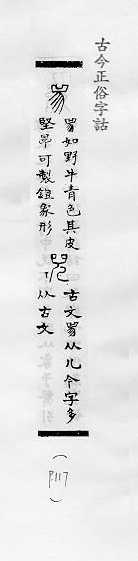 古今正俗字詁
𤉡 𤉡如野牛青色其皮
堅㫗可製鎧象形
兕 古文𤉡从儿今字多
从古文
(P.117)